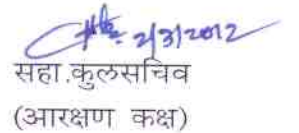 2/3/2012
सहा.कुलसचिव
(आरक्षण कक्ष)